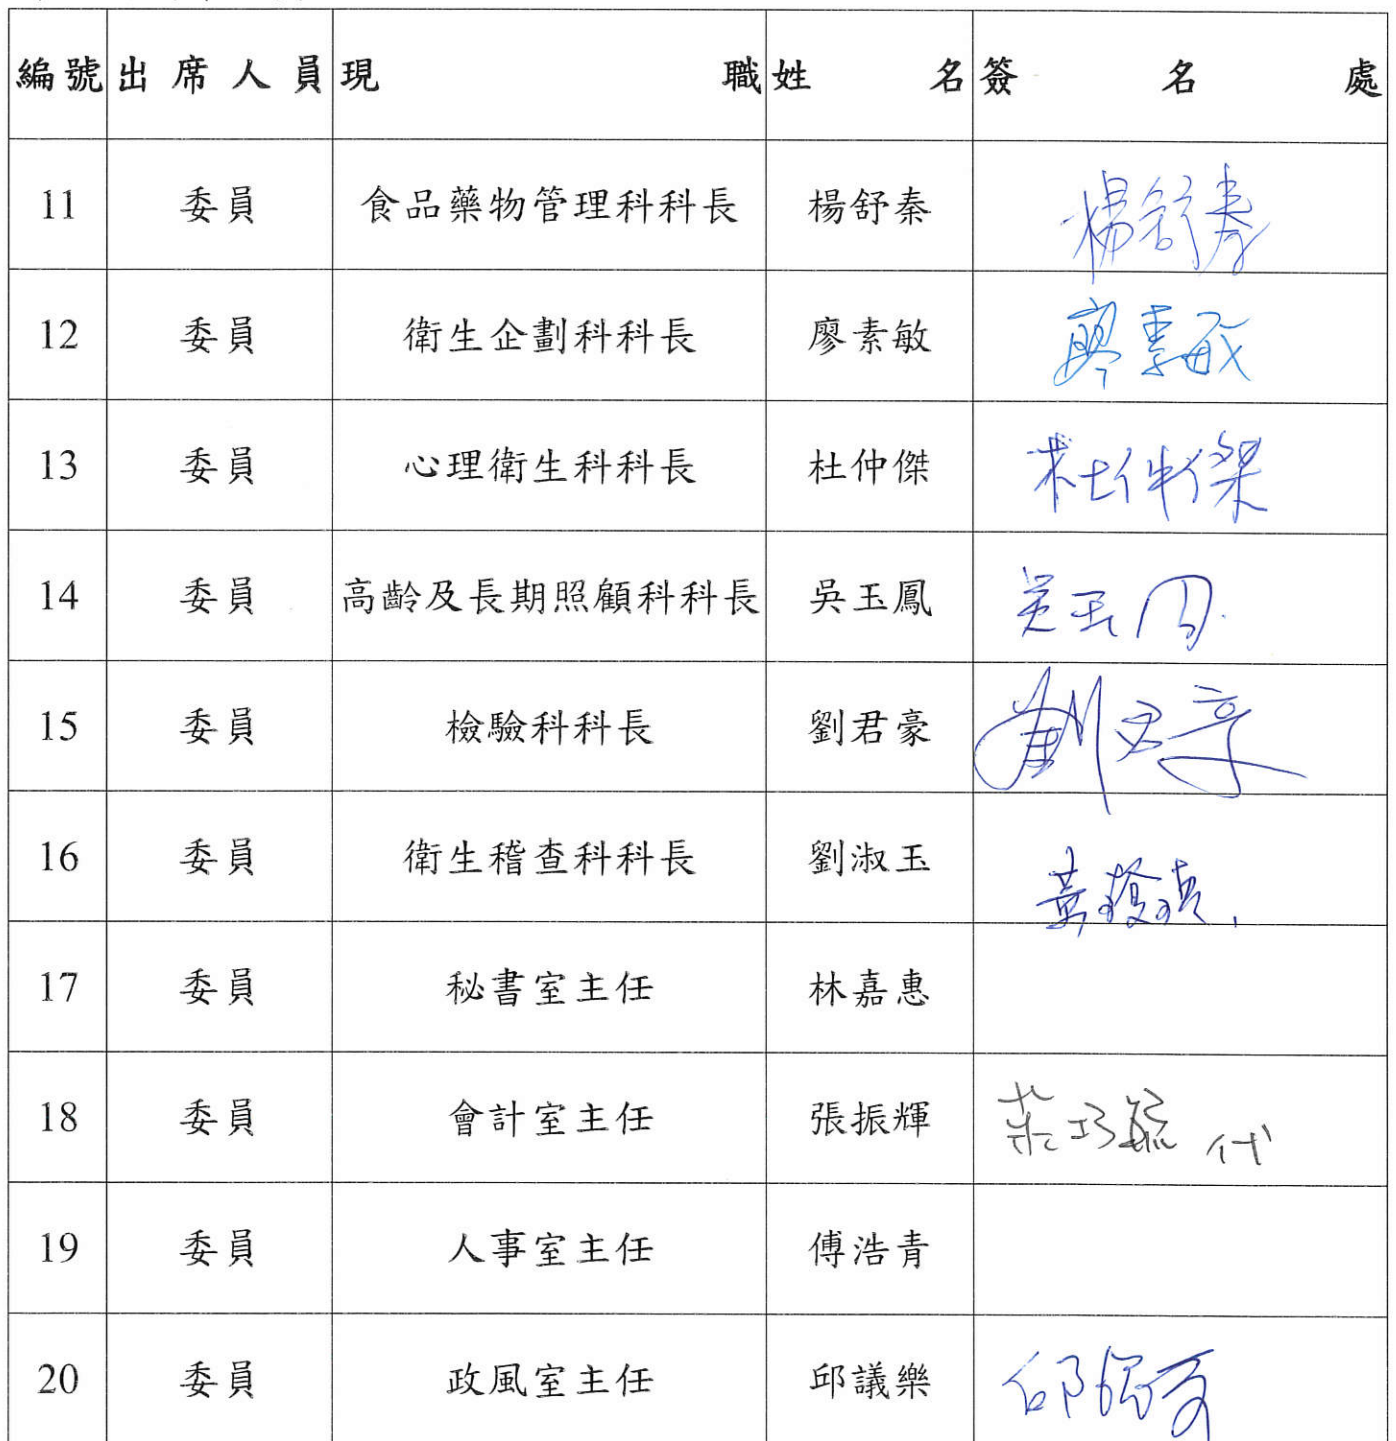 編號 出席人員 現職 姓名 簽名處
11 委員 食品藥物管理科科長 楊舒秦 楊舒秦
12 委員 衛生企劃科科長 廖素敏 廖素敏
13 委員 心理衛生科科長 杜仲傑 杜仲傑
14 委員 高齡及長期照顧科科長 吳玉鳳 吳玉鳳
15 委員 檢驗科科長 劉君豪 劉君豪
16 委員 衛生稽查科科長 劉淑玉 黃
17 委員 秘書室主任 林嘉惠
18 委員 會計室主任 張振輝 莊巧 代
19 委員 人事室主任 傅浩青
20 委員 政風室主任 邱議樂 邱